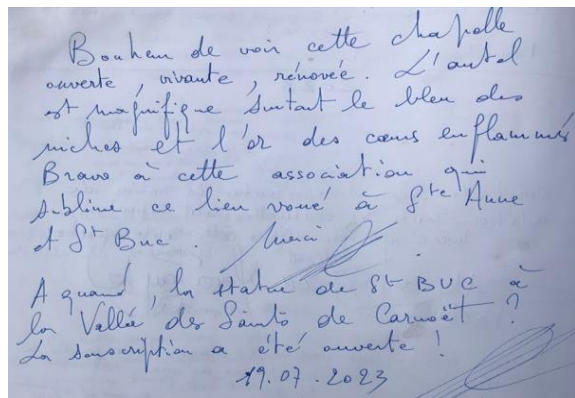 Bonheur de voir cette chapelle
ouverte, vivante, rénovée. L'autel
est magnifique surtout le bleu des
niches et l'or des cœurs enflammés
Bravo à cette association qui
sublime ce lieu voué à Ste Anne
et St Buc. Merci
A quand, la statue de St BUC à
la Vallée des Saints de Carnoët ?
La souscription a été ouverte !
19.07.2023